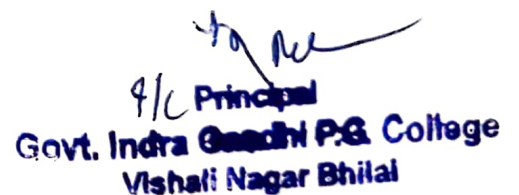 I/C Principal
Govt. Indra Gandhi P.G. College
Vishali Nagar Bhilai